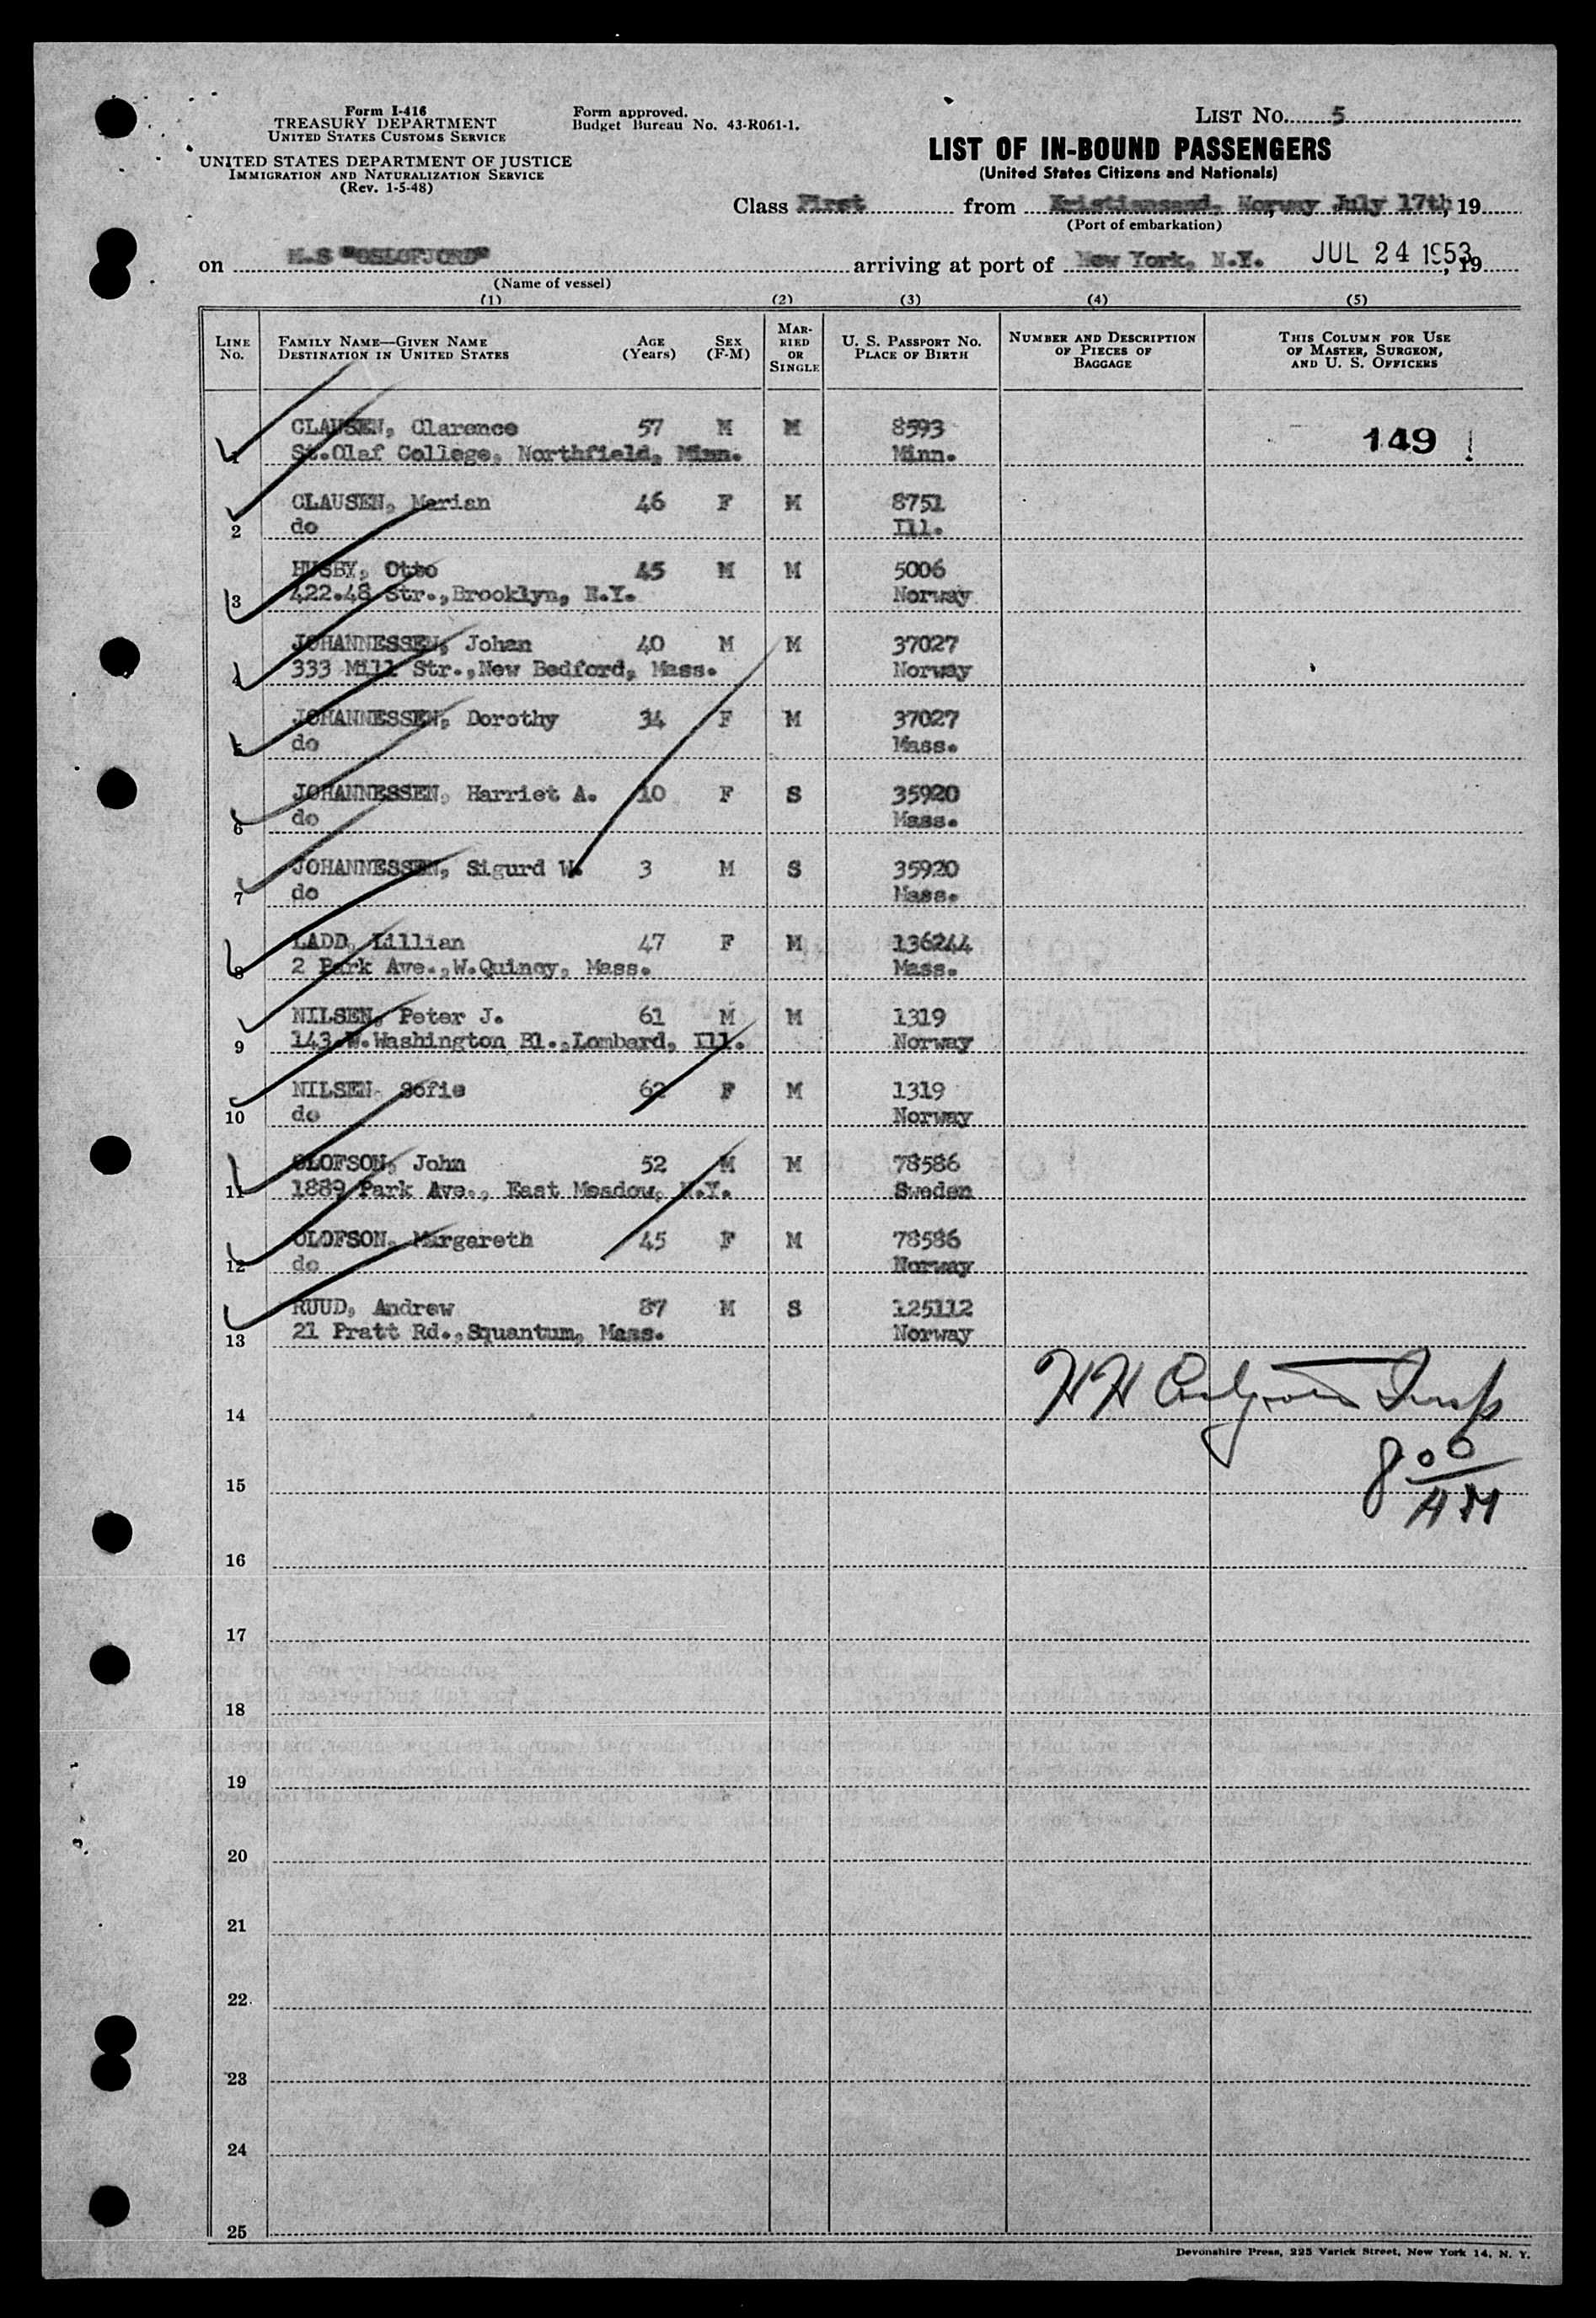 Form I-416
TREASURY DEPARTMENT
UNITED STATES CUSTOMS SERVICE
UNITED STATES DEPARTMENT OF JUSTICE
IMMIGRATION AND NATURALIZATION SERVICE
(Rev. 1-5-48)
Form approved.
Budget Bureau No. 43-R061-1.
LIST No. 5
LIST OF IN-BOUND PASSENGERS
(United States Citizens and Nationals)
Class First from Kristiansand, Norway July 17th, 19
(Port of embarkation)
on M.S "OSLOFJORD" arriving at port of New York, N.Y. JUL 24 1953, 19
(Name of vessel)
(1) (2) (3) (4) (5)
LINE No. FAMILY NAME—GIVEN NAME DESTINATION IN UNITED STATES AGE (Years) SEX (F-M) MARRIED OR SINGLE U. S. PASSPORT No. PLACE OF BIRTH NUMBER AND DESCRIPTION OF PIECES OF BAGGAGE THIS COLUMN FOR USE OF MASTER, SURGEON, AND U. S. OFFICERS
CLAUSEN, Clarence 57 M M 8593 149
1 St.Olaf College, Northfield, Minn. Minn.
CLAUSEN, Marian 46 F M 8751
2 do Ill.
HUSBY, Otto 45 M M 5006
3 422.48 Str.,Brooklyn, N.Y. Norway
JOHANNESSEN, Johan 40 M M 37027
4 333 Mill Str.,New Bedford, Mass. Norway
JOHANNESSEN, Dorothy 34 F M 37027
5 do Mass.
JOHANNESSEN, Harriet A. 10 F S 35920
6 do Mass.
JOHANNESSEN, Sigurd W. 3 M S 35920
7 do Mass.
LADD, Lillian 47 F M 136244
8 2 Park Ave.,W.Quincy, Mass. Mass.
NILSEN, Peter J. 61 M M 1319
9 143.W.Washington Bl.,Lombard, Ill. Norway
NILSEN Sofie 62 F M 1319
10 do Norway
OLOFSON, John 52 M M 78586
11 1889 Park Ave., East Meadow, N.Y. Sweden
OLOFSON, Margareth 45 F M 78586
12 do Norway
RUUD, Andrew 87 M S 125112
13 21 Pratt Rd.,Squantum, Mass. Norway
14
8 00 AM
15
16
17
18
19
20
21
22
23
24
25
Devonshire Press, 225 Varick Street, New York 14, N. Y.